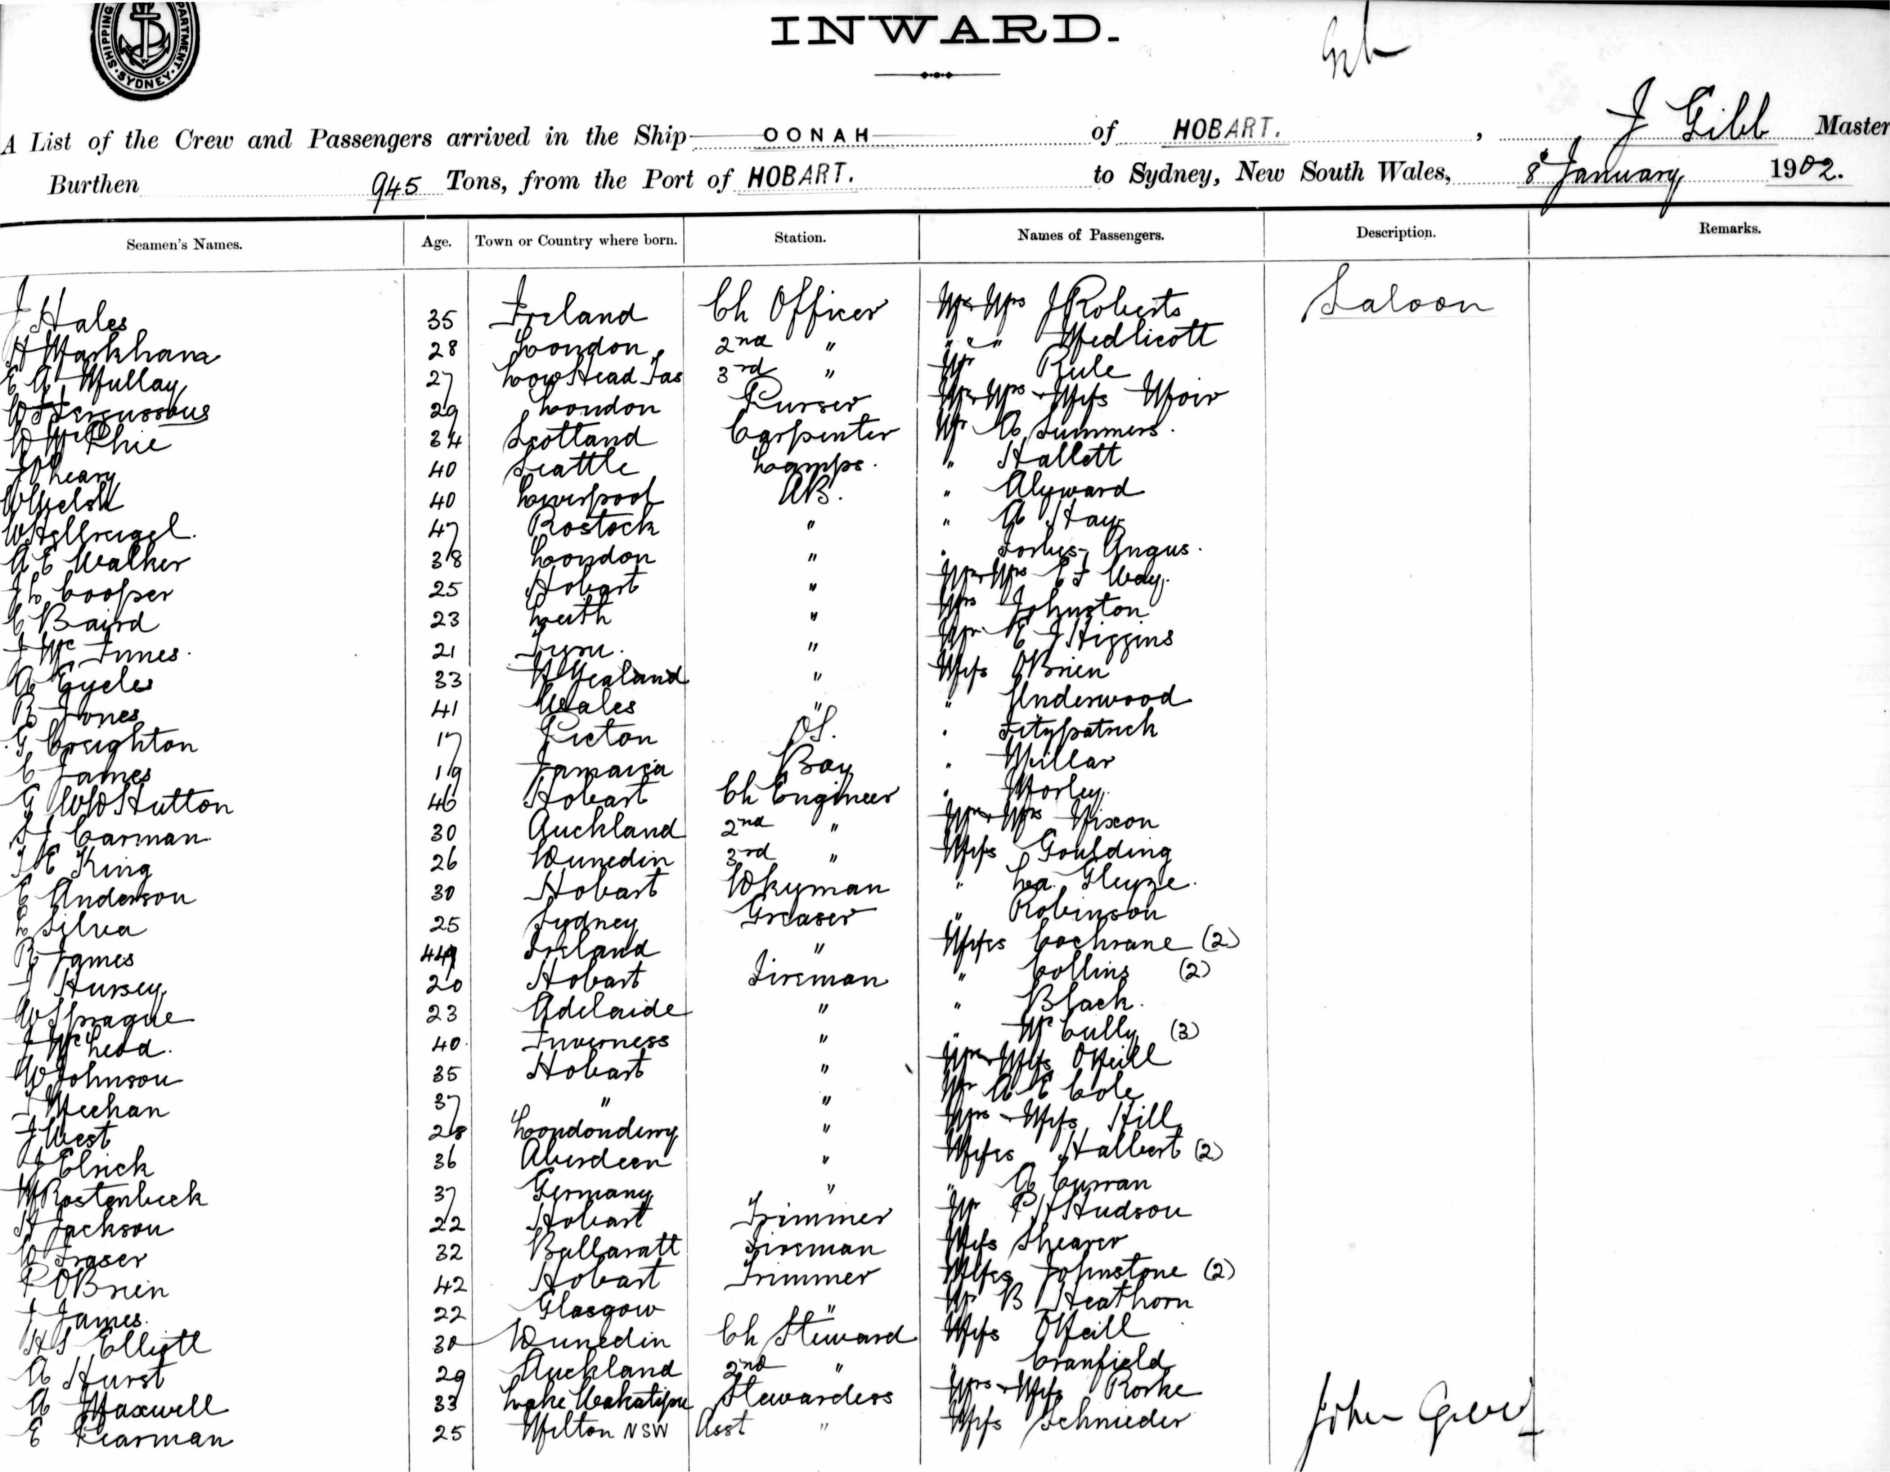 SHIPPING DEPARTMENT SYDNEY
INWARD.
A List of the Crew and Passengers arrived in the Ship OONAH of HOBART. , J Gibb Master
Burthen 945 Tons, from the Port of HOBART. to Sydney, New South Wales, 8 January 1902.
Seamen's Names. Age. Town or Country where born. Station. Names of Passengers. Description. Remarks.
J Hales 35 Ireland Ch Officer Mr Mrs J Roberts Saloon
H Markham 28 London 2nd " " " " Medlicott
E A Mullay 27 Low Head Tas 3rd " Mr Rule
Fergussons 29 London Purser Mr Mrs Miss Moir
McPhie 34 Scotland Carpenter Mr A Summers.
40 Seattle Lamps. " Hallett
W Welsh 40 Liverpool AB. " Alyward
47 Rostock " " A Hay
A E Walker 38 London " " Forbes Angus.
J L Cooper 25 Hobart " Mr Mrs E J Way.
C Baird 23 Leith " Mrs Johnston
J McInnes. 21 " Mr E J Higgins
A Eycles 33 N Zealand " Miss OBrien
R Jones 41 Wales " " Underwood
G Creighton 17 Picton OS. " Fitzpatrick
C James 19 Jamaica Boy " Millar
G W D Hutton 46 Hobart Ch Engineer " Morley.
Carman 30 Auckland 2nd " Mr Mrs Nixon
E King 26 Dunedin 3rd " Miss Goulding
E Anderson 30 Hobart Dkyman "
L Silva 25 Sydney Greaser " Robinson
R James 49 Ireland " Misses Cochrane (2)
J Hursey 20 Hobart Fireman " Collins (2)
W Sprague 23 Adelaide " " Black.
J McLeod. 40 Inverness " " McCully (3)
W Johnson 35 Hobart " Mr Miss ONeill
J Meehan 37 " " Mr A E Cole
J West 28 Londonderry " Mrs Miss Hill
J Elrick 36 Aberdeen " Misses Halbert (2)
W Rostenbeck 37 Germany " " A Curran
H Jackson 22 Hobart Trimmer Mr P H Hudson
W Fraser 32 Ballaratt Fireman Miss Shearer
P OBrien 42 Hobart Trimmer Misses Johnstone (2)
J James. 22 Glasgow " Mr B Heathorn
H S Elliott 30 Dunedin Ch Steward Miss ONeill
A Hurst 29 Auckland 2nd " " Cranfield
A Maxwell 33 Lake Wakatipu Stewardess Mrs Miss Rorke
E Pearman 25 Milton NSW Asst " Miss Schnieder
John